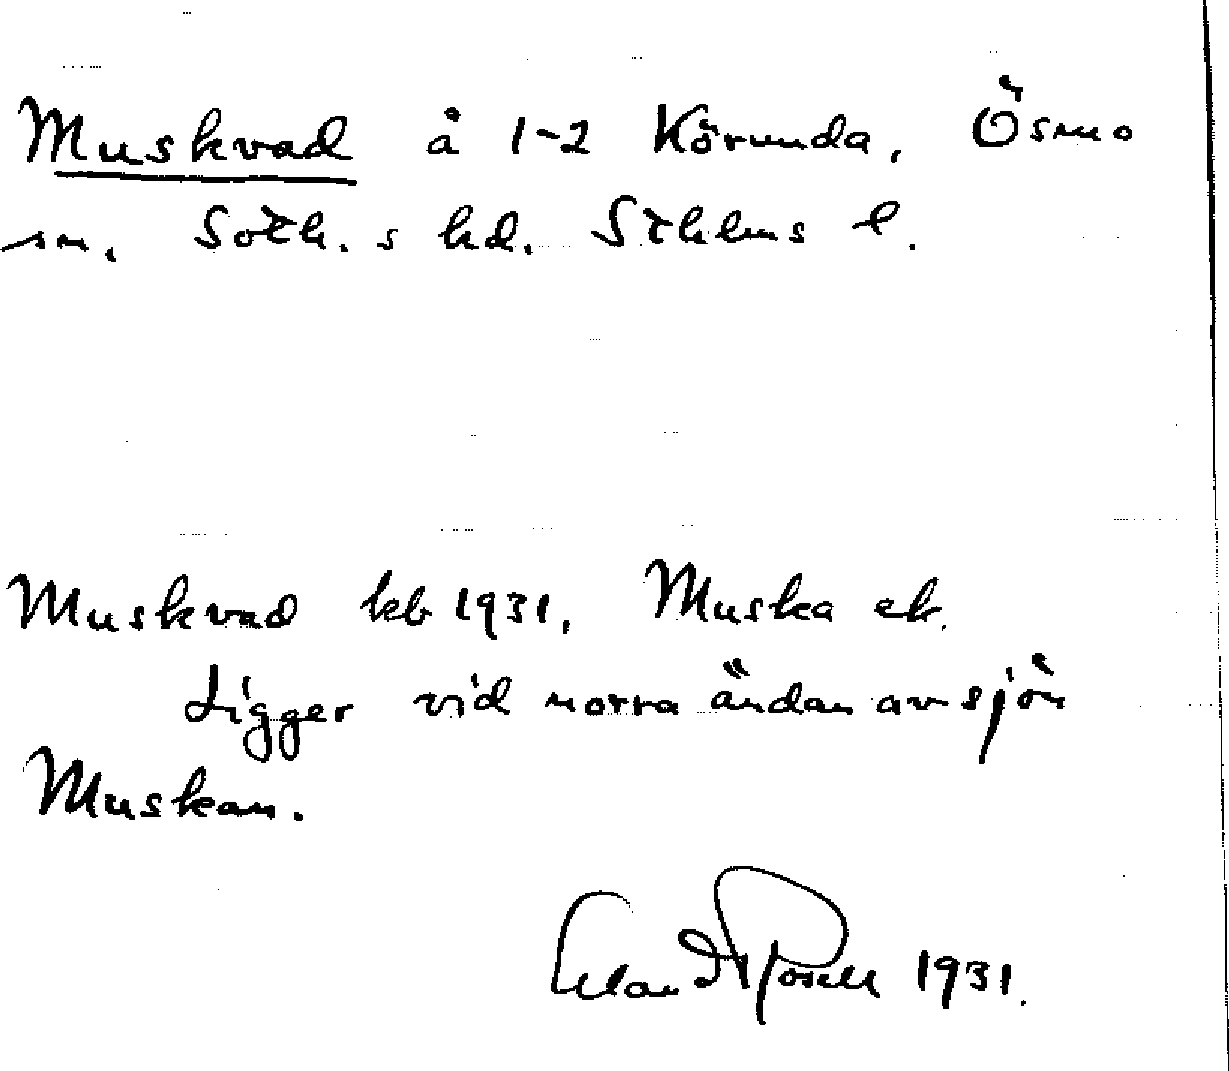 Muskvad å 1-2 Körunda, Ösmo
sn. Soth. s hd. Sthlms l.
Muskvad kb 1931, Muska ek.
Ligger vid norra ändan av sjön
Muskan.
Erland Rosell 1931.